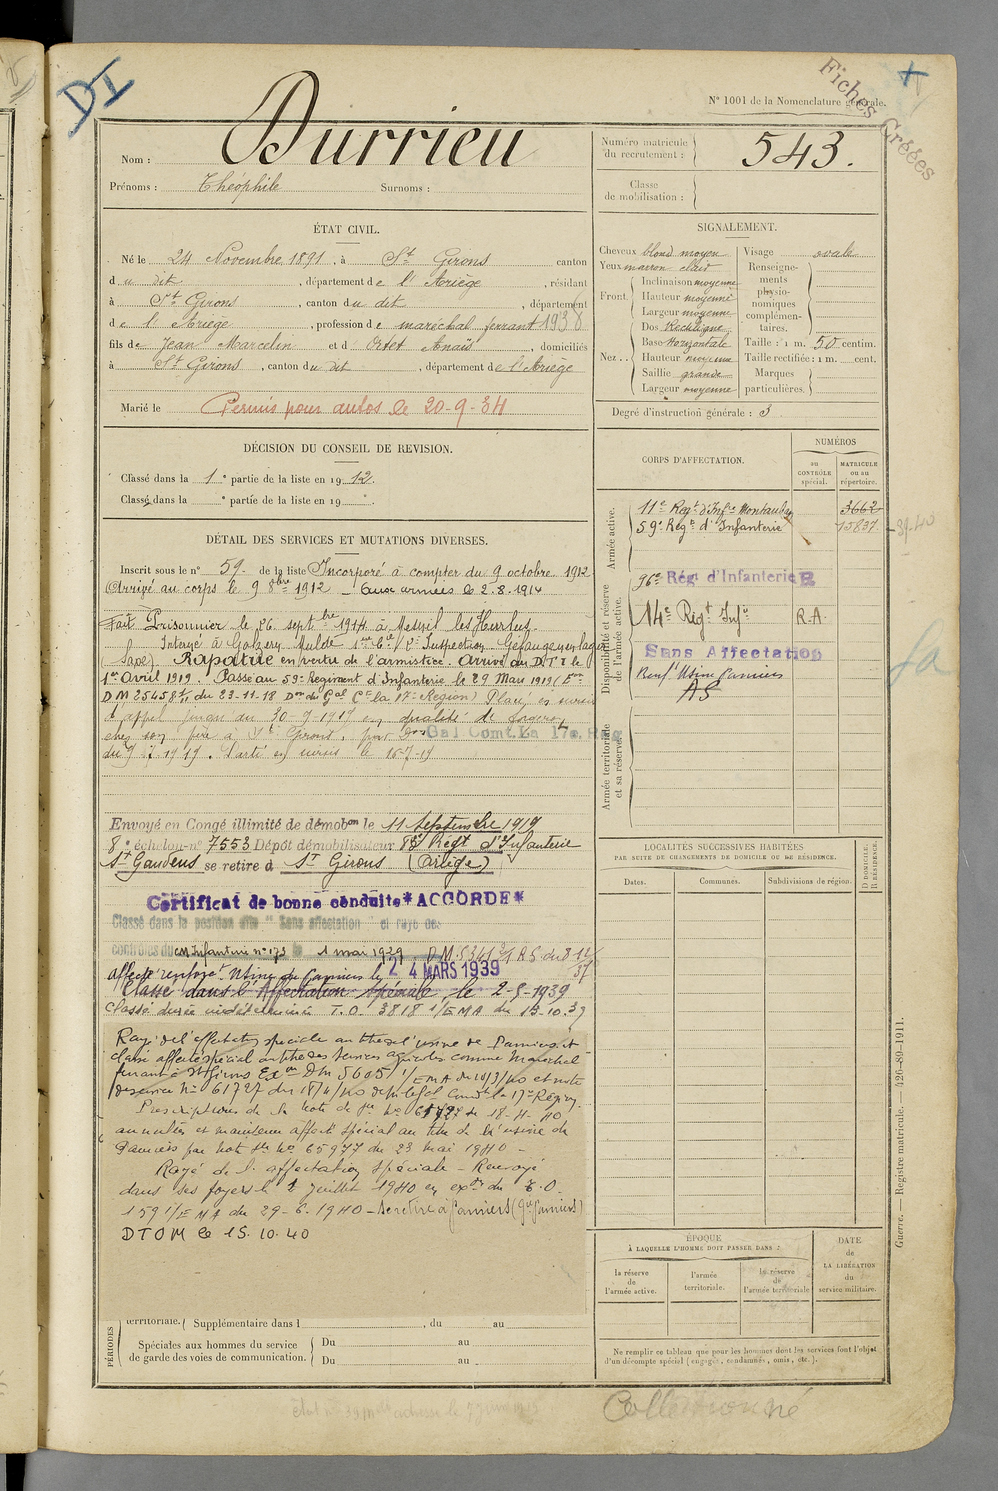 DI
Fiches Créées
N° 1001 de la Nomenclature générale.
Nom : Durrieu
Prénoms : Théophile Surnoms :
Numéro matricule du recrutement : 543.
Classe de mobilisation :
ÉTAT CIVIL.
Né le 24 Novembre 1891, à St Girons canton
du dit, département de l'Ariège, résidant
à St Girons, canton du dit, département
de l'Ariège, profession de maréchal ferrant 1938
fils de Jean Marcelin et d' Ortet Anaïs, domiciliés
à St Girons, canton du dit, département de l'Ariège
Marié le Permis pour autos le 20-9-34
SIGNALEMENT.
Cheveux blond moyen
Yeux marron clair
Front. Inclinaison moyenne
Hauteur moyenne
Largeur moyenne
Nez... Dos Rectiligne
Base Horizontale
Hauteur moyenne
Saillie grande
Largeur moyenne
Visage ovale
Renseignements physionomiques complémentaires.
Taille : 1 m. 50 centim.
Taille rectifiée : 1 m. cent.
Marques particulières.
Degré d'instruction générale : 3
DÉCISION DU CONSEIL DE REVISION.
Classé dans la 1e partie de la liste en 1912.
Classé dans la e partie de la liste en 19
DÉTAIL DES SERVICES ET MUTATIONS DIVERSES.
Inscrit sous le n° 59 de la liste Incorporé à compter du 9 octobre 1912
Arrivé au corps le 9 8bre 1912 — Aux armées le 2.8.1914
Fait Prisonnier le 26 septbre 1914 à Mesnil les Hurlus
Interné à Golzern Mulde 1ère Cie / 2e Inspection Gefangenenlager
(Saxe). Rapatrié en vertu de l'armistice. Arrivé au D.T.I le
1er Avril 1919. Passé au 59e Régiment d'Infanterie le 29 Mars 1919 (Exon
DM 25458 1/11 du 23-11-18 Don du Gal Ct la 17e Région) Placé en sursis
d'appel jusqu'au 30-9-1919 en qualité de forgeron
chez son père à St Girons, par Don Gal Comt. La 17e. Rég
du 7 1919. Parti en sursis le 16-7-19
Envoyé en Congé illimité de démobon le 11 Septembre 1919
8e échelon n° 7553 Dépôt démobilisateur 88e Régt d'Infanterie
St Gaudens se retire à St Girons (Ariège)
Certificat de bonne conduite *ACCORDE*
Classé dans la position dite "Sans affectation" et rayé des
contrôles du CM Infanterie n° 173 le 1 mai 1929. DM. 5341 3/1 A S du 8-12
Affecté renforct Usine de Pamiers le 24 MARS 1939
Classé dans l'Affectation Spéciale, le 2-9-1939
Classé durée indéterminée T.O. 3818 1/EMA du 13-10.39
Rayé de l'affectation spéciale au titre de l'usine de Pamiers et
classé affecté spécial au titre des services agricoles comme Maréchal
ferrant à St Girons Exon DM 5605 1/EMA du 10/3/40 et note
de service N° 61727 du 18/4/40 de M. le Gal Comdt la 17e Région
Prescriptions de la note de sce N° 61727 du 18-4-40
annulées et maintenu affecté spécial au titre de l'usine de
Pamiers par note sce No 65977 du 23 mai 1940 —
Rayé de l'affectation spéciale — Renvoyé
dans ses foyers le 2 juillet 1940 en exon du T.O.
159 1/EMA du 29-6-1940 — se retire à Pamiers
DTOM le 15.10.40
CORPS D'AFFECTATION.
NUMÉROS
au CONTRÔLE spécial.
MATRICULE ou au répertoire.
Armée active.
11e Regt d'Infie Montauban 3662
59e Regt d'Infanterie 15837
Disponibilité et réserve de l'armée active.
96e Régt d'Infanterie R
14e Régt Infie R.A.
Sans Affectation
Renft Usine Pamiers
AS
Armée territoriale et sa réserve.
LOCALITÉS SUCCESSIVES HABITÉES
PAR SUITE DE CHANGEMENTS DE DOMICILE OU DE RÉSIDENCE.
Dates. Communes. Subdivisions de région. D DOMICILE. R RÉSIDENCE.
ÉPOQUE
À LAQUELLE L'HOMME DOIT PASSER DANS :
la réserve de l'armée active.
l'armée territoriale.
la réserve de l'armée territoriale
DATE de LA LIBÉRATION du service militaire.
Ne remplir ce tableau que pour les hommes dont les services font l'objet
d'un décompte spécial (engagés, condamnés, omis, etc.).
PÉRIODES
territoriale. Supplémentaire dans l , du au
Spéciales aux hommes du service de garde des voies de communication.
Du au
Du au
Guerre. — Registre matricule. — 426-89-1911.
Collectionné